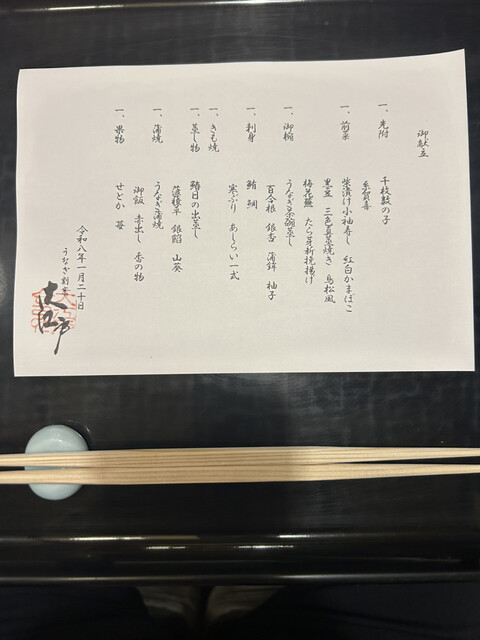 御献立
一、先附 千枚数の子
糸賀喜
一、前菜 柴漬け小袖寿し 紅白かまぼこ
黒豆 三色真薯焼き 鳥松風
梅花羹 たら芽新挽揚げ
一、御椀 うなぎ茶碗蒸し
百合根 銀杏 蒲鉾 柚子
一、刺身 鮪 鯛
寒ぶり あしらい一式
一、きも焼
一、蒸し物 鰆日の出蒸し
菠薐草 銀餡 山葵
一、蒲焼 うなぎ蒲焼
御飯 赤出し 香の物
一、果物 せとか 苺
令和八年一月二十日
うなぎ割烹
大江戸